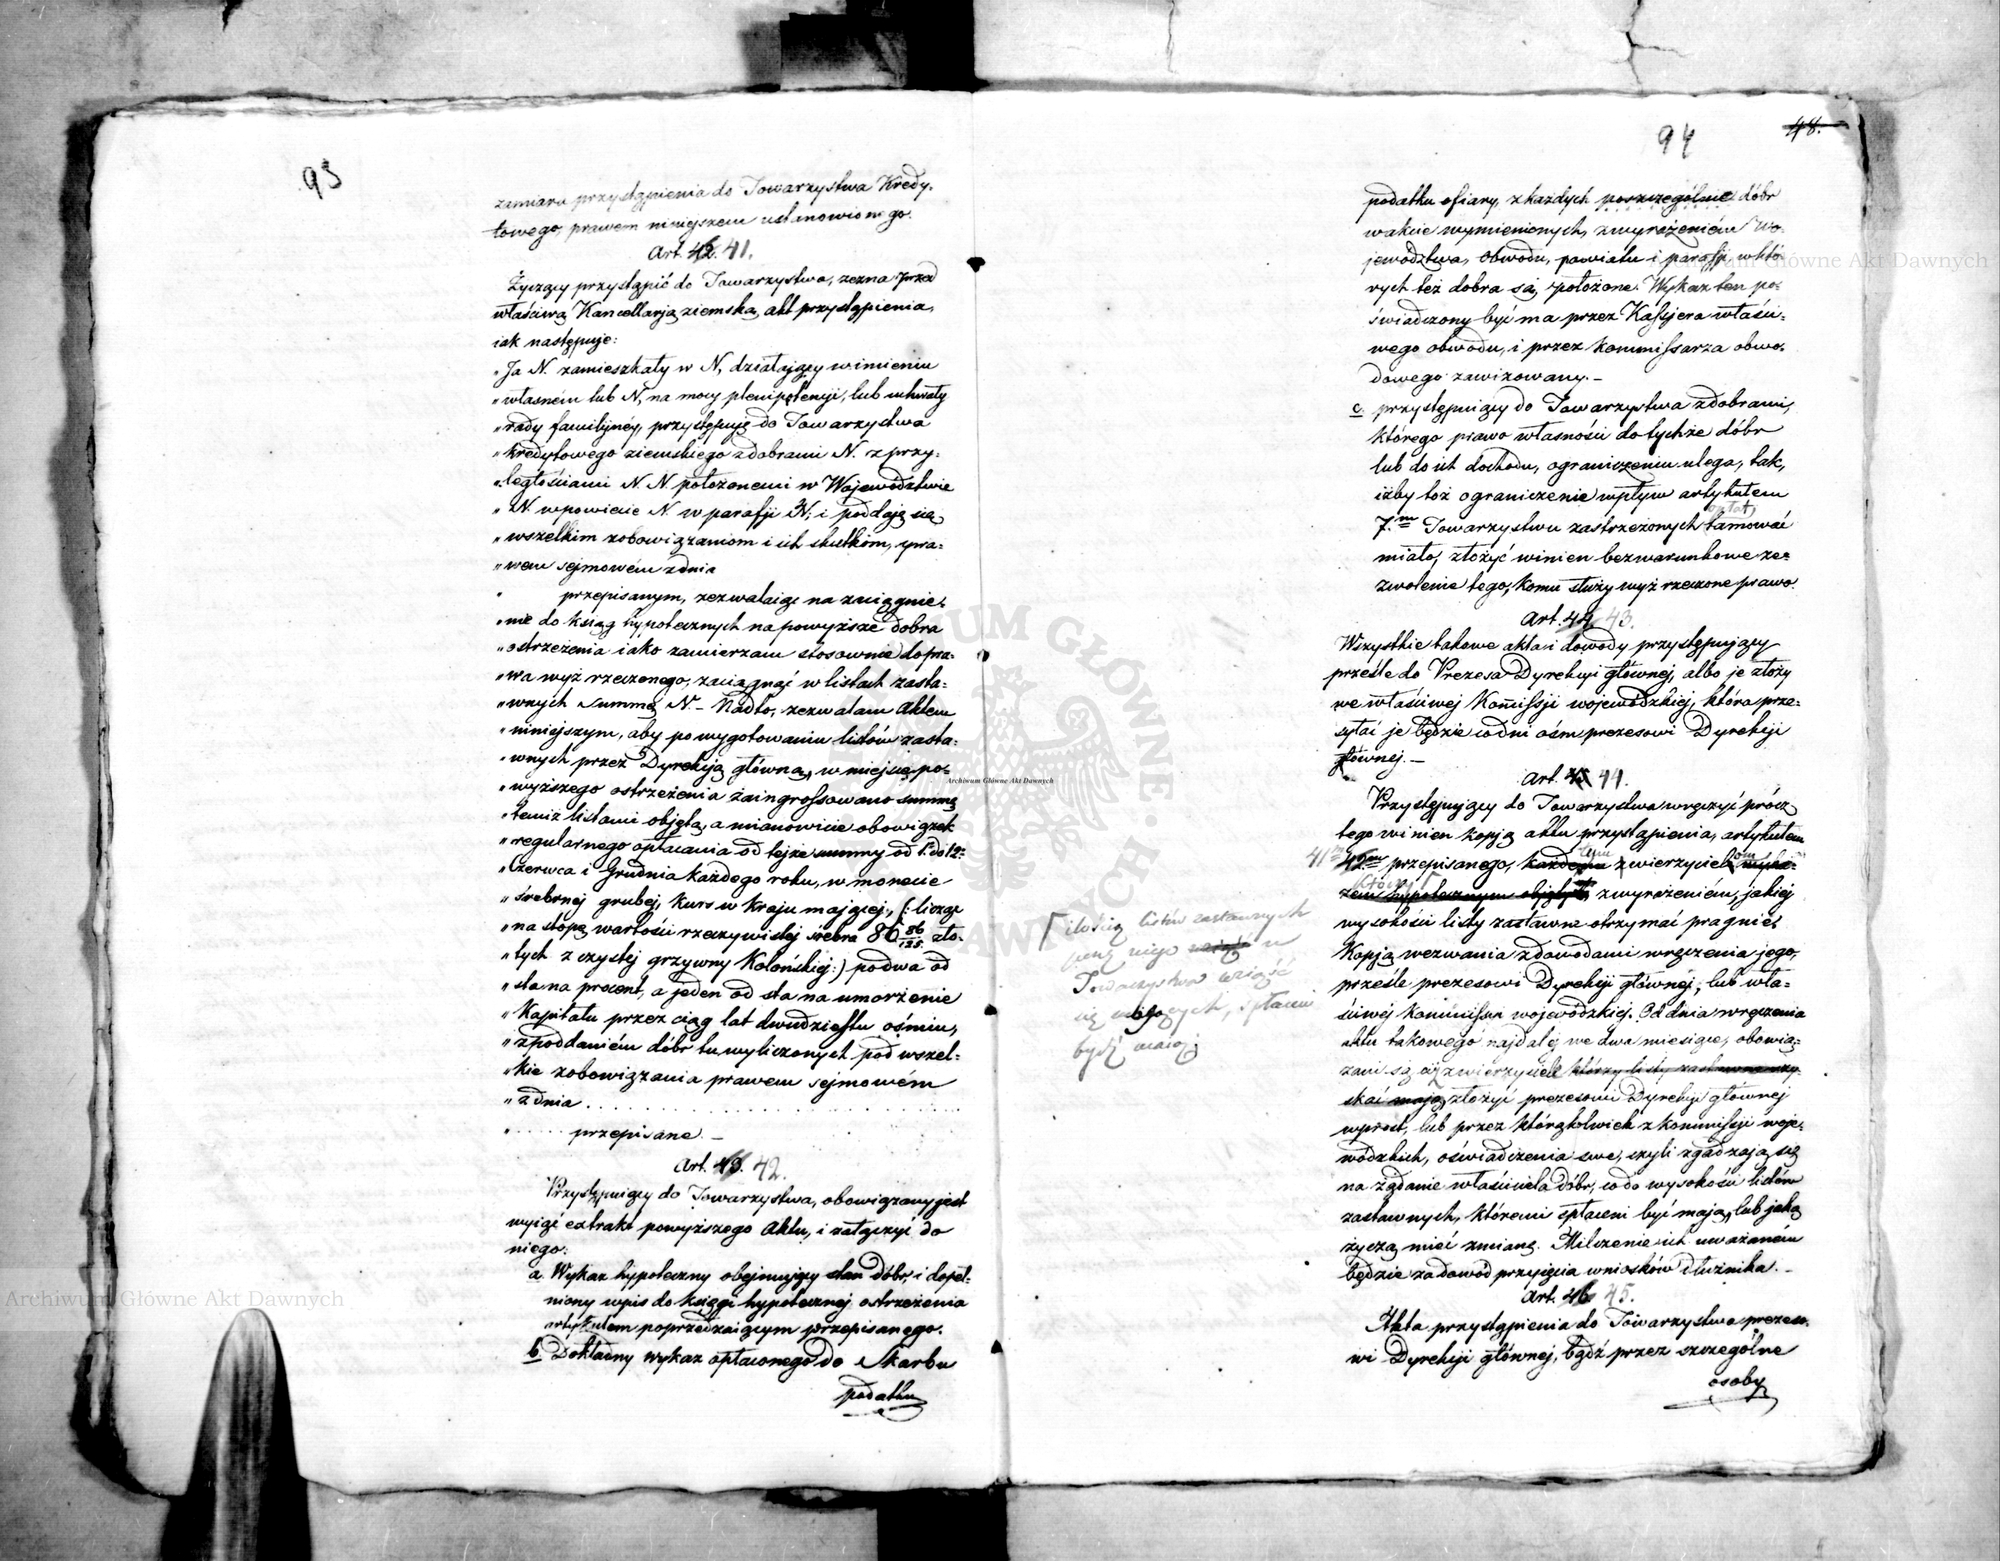 93
zamiaru przystąpienia do Towarzystwa Kredy-
towego, prawem niniejszem ustanowionego.
Art. 42. 41.
Życzący przystąpić do Towarzystwa, zezna przed
właściwą Kancellarją ziemską, akt przystąpienia,
iak następuje:
„Ja N. zamieszkały w N, działający w imieniu
„własnem lub N, na mocy plenipotencji, lub uchwały
„rady familijnéy, przystępuję do Towarzystwa
„kredytowego ziemskiego z dobrami N. z przy-
„ległościami N. N. położonemi w Województwie
„N. w powiecie N. w parafji N; i poddaję się,
„wszelkim zobowiązaniom i ich skutkom, pra-
„wem sejmowém z dnia
„ przepisanym, zezwalaiąc na zaciągnie-
„nie do ksiąg hypotecznych na powyższe dobra
„ostrzeżenia iako zamierzam stosownie do pra-
„wa wyż rzeczonego, zaciągnąć w listach zasta-
„wnych summę N. – Nadto, zezwalam Aktem
„niniejszym, aby po wygotowaniu listów zasta-
„wnych przez Dyrekcją główną, w miejsce po-
„wyższego ostrzeżenia zaingrossowano summę
„temiż listami objętą, a mianowicie obowiązek
„regularnego opłacania od tejże summy od 1. do 12.
„Czerwca i Grudnia każdego roku, w monecie
„srebrnej grubej, kurs w kraju mającej, (: licząc
„na stopę wartości rzeczywistej srebra 86 86/125 zło-
„tych z czystej grzywny Kolońskiej:) po dwa od
„sta na procent, a jeden od sta na umorzenie
„Kapitału przez ciąg lat dwudziestu ośmiu,
„z poddaniem dóbr tu wyliczonych pod wszel-
„kie zobowiązania prawem sejmowém
„z dnia . . . . . . . . . .
„ . . . . . przepisane. –
Art. 43. 42.
Przystępuiący do Towarzystwa, obowiązany jest
wyiąć extrakt powyższego Aktu, i załączyć do
niego:
a. Wykaz hypoteczny obejmujący stan dóbr, i dopeł-
niony wpis do księgi hypotecznej ostrzeżenia
artykułem poprzedzaiącym przepisanego.
b. Dokładny wykaz opłaconego do Skarbu
podatku
94 48.
podatku ofiary, z każdych poszczególnie dóbr
w akcie wymienionych, z wyrażeniem Wo-
jewództwa, Obwodu, powiatu i parafji w któ-
rych też dobra są położone. Wykaz ten po-
świadczony być ma przez Kassjera właści-
wego obwodu, i przez kommissarza obwo-
dowego zawizowany. –
c. przystępuiący do Towarzystwa z dobrami,
którego prawo własności do tychże dóbr
lub do ich dochodu, ograniczeniu ulega, tak,
iżby toż ograniczenie wpływ artykułem
opłat
7.m Towarzystwu zastrzeżonych tamować
miało, złożyć winien bezwarunkowe ze-
zwolenie tego, komu służy wyż rzeczone prawo.
Art. 44. 43.
Wszystkie takowe akta i dowody przystępujący
prześle do Prezesa Dyrekcji głównej, albo je złoży
we właściwej Kommissji wojewódzkiej, która prze-
syłać je będzie co dni ośm prezesowi Dyrekcji
głównej. –
Art. 45 44.
Przystępujący do Towarzystwa wręczyć prócz
tego winien kopją aktu przystąpienia, artykułem
41m 42m przepisanego, każdemu tym z wierzycieli om wyka-
którzy zem hypotecznym objętych z wyrażeniem, jakiej
wysokości listy zastawne otrzymać pragnie.
Kopją wezwania z dowodami wręczenia jego,
prześle prezesowi Dyrekcji głównej, lub wła-
ściwéj Kommissji wojewódzkiej. Od dnia wręczenia
aktu takowego najdalej we dwa miesiące, obowią-
zani są ciż wierzyciele którzy listy zastawne uzy-
skać mają, złożyć prezesowi Dyrekcji głównej
wprost, lub przez którąkolwiek z kommissji woje-
wódzkich, oświadczenia swe, czyli zgadzają się
na żądanie właściciela dóbr, co do wysokości listów
zastawnych, któremi spłaceni być mają, lub jaką
życzą mieć zmianę. Milczenie ich uważaném
będzie za dowód przyjęcia wniosków dłużnika. –
Art. 46 45.
Akta przystąpienia do Towarzystwa prezeso-
wi Dyrekcji głównej, bądź przez szczególne
osoby
ilością listów zastawnych
przez niego w
Towarzystwa wziąść
się mających, spłaceni
bydź maią
Archiwum Główne Akt Dawnych
Archiwum Główne Akt Dawnych
Archiwum Główne Akt Dawnych